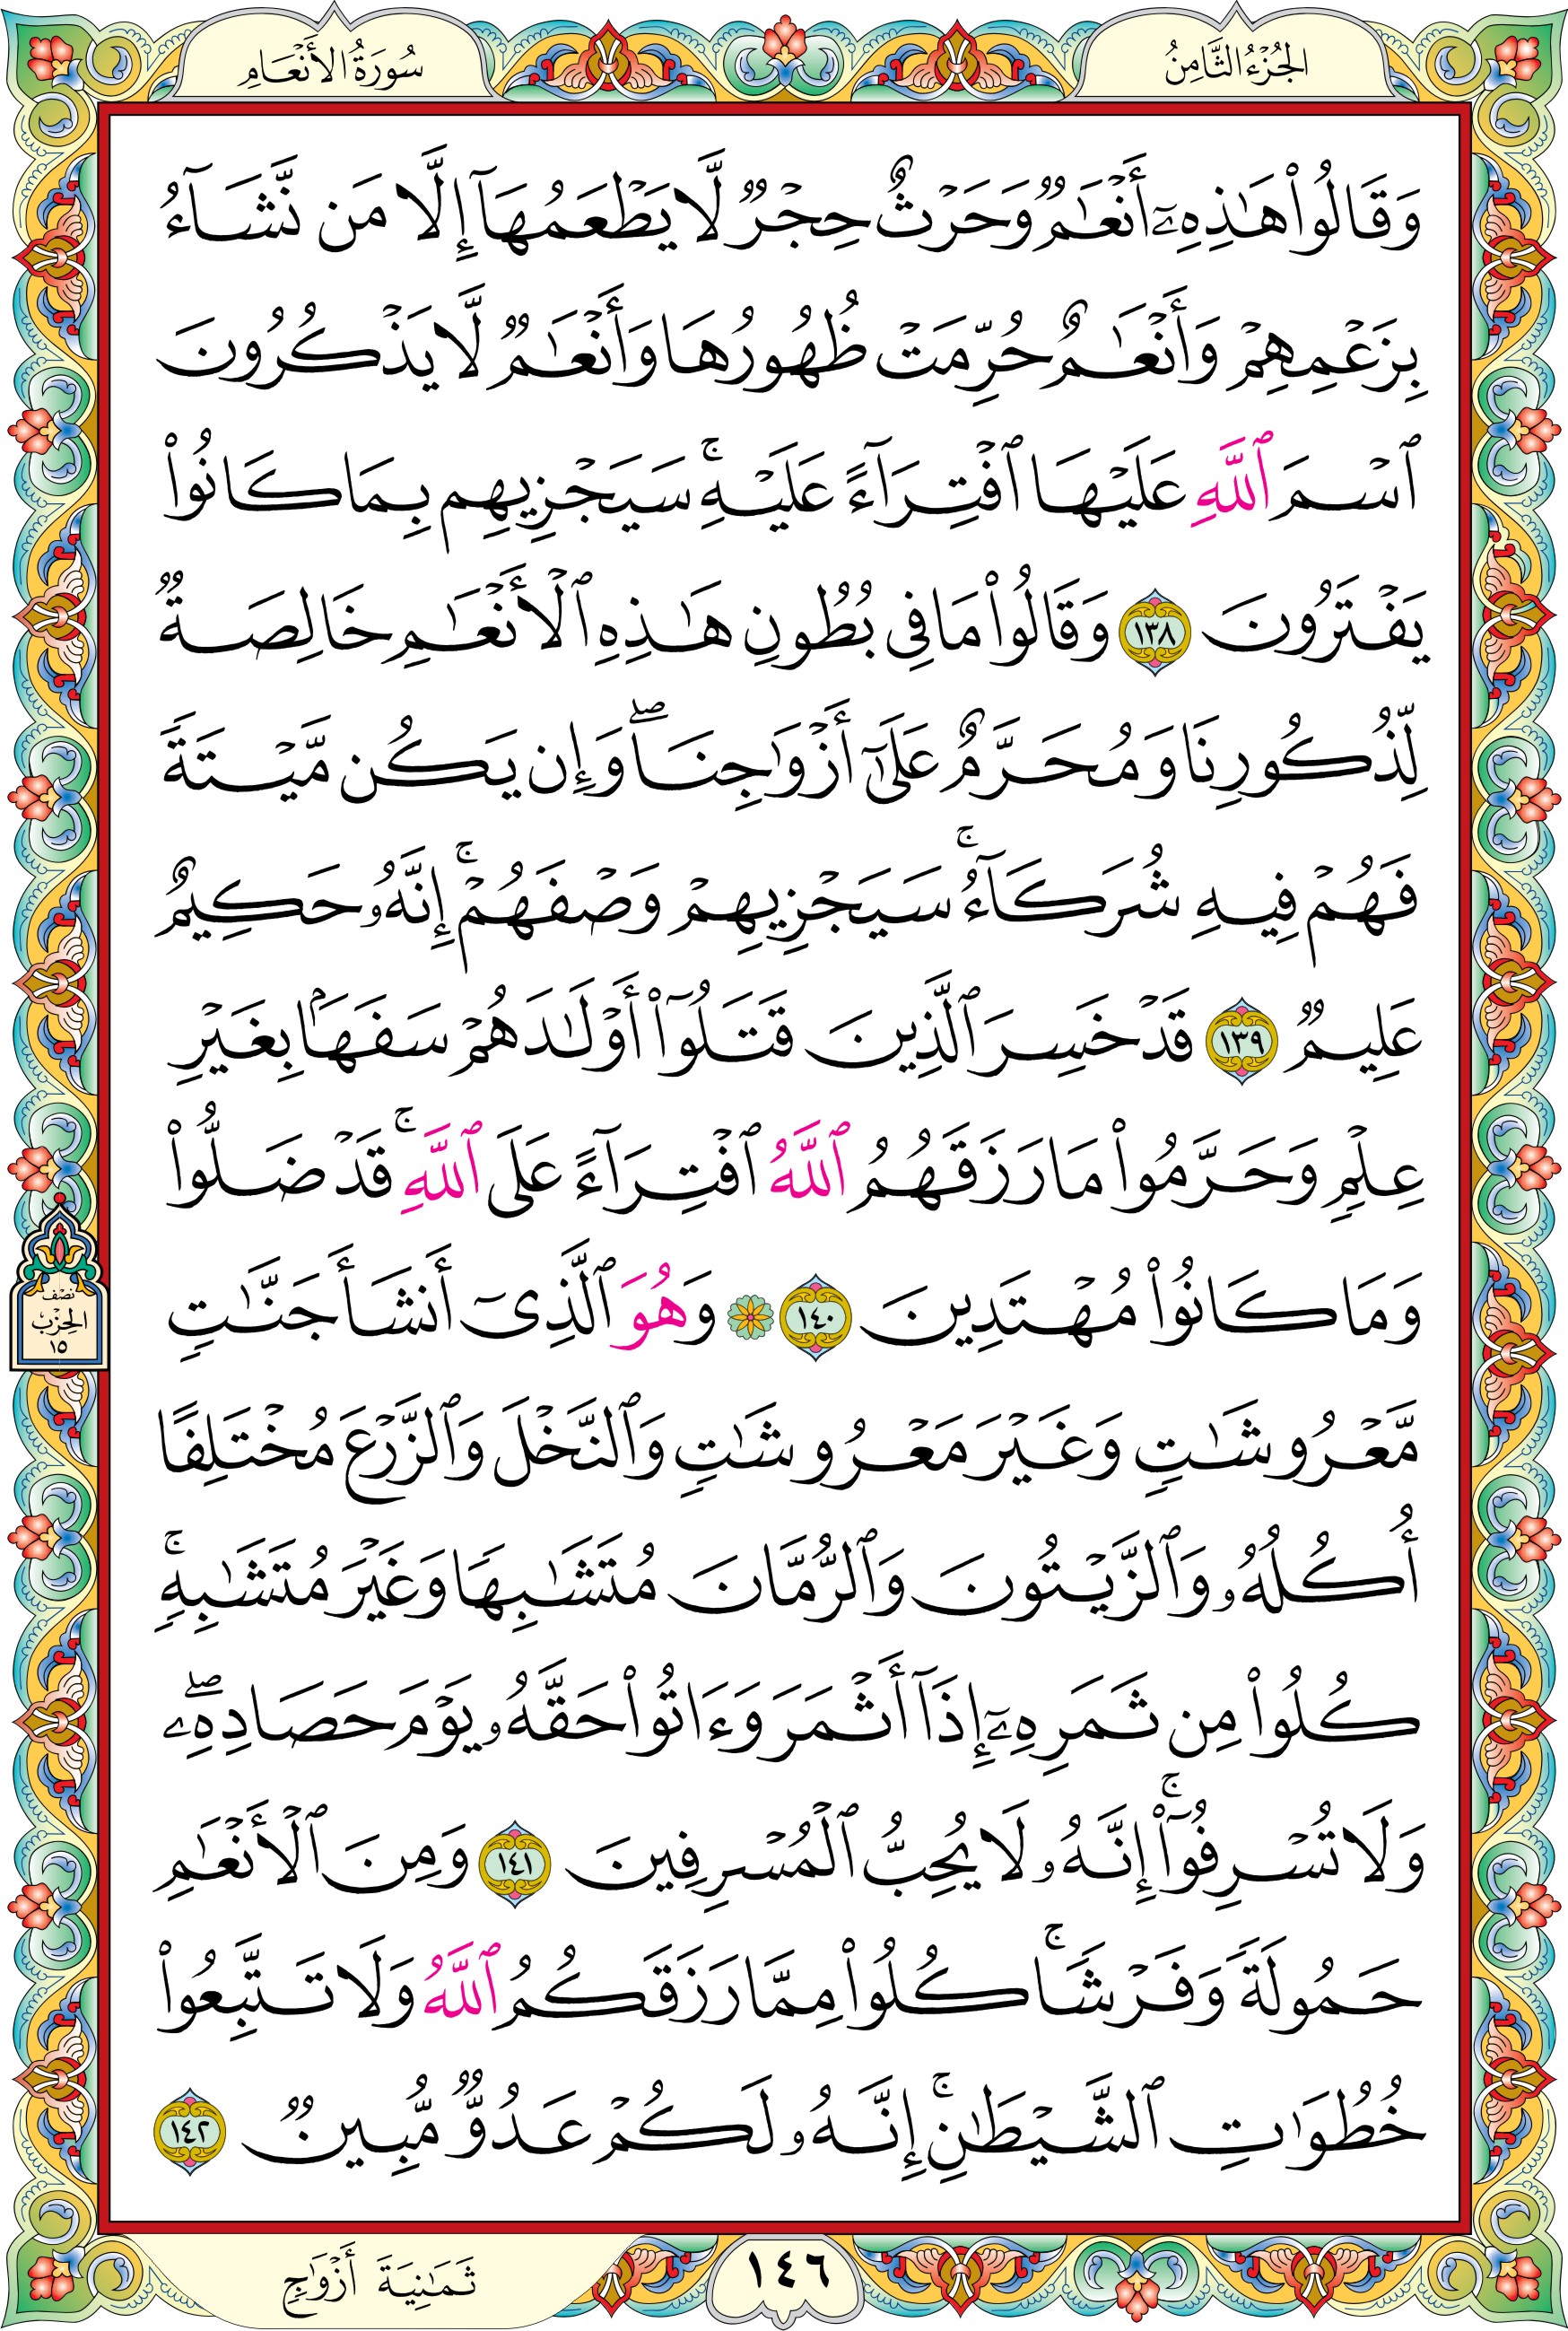 الجُزْءُ الثَّامِنُ
سُورَةُ الأَنْعَامِ
وَقَالُوا۟ هَـٰذِهِۦٓ أَنْعَـٰمٌ وَحَرْثٌ حِجْرٌ لَّا يَطْعَمُهَآ إِلَّا مَن نَّشَآءُ
بِزَعْمِهِمْ وَأَنْعَـٰمٌ حُرِّمَتْ ظُهُورُهَا وَأَنْعَـٰمٌ لَّا يَذْكُرُونَ
ٱسْمَ ٱللَّهِ عَلَيْهَا ٱفْتِرَآءً عَلَيْهِ ۚ سَيَجْزِيهِم بِمَا كَانُوا۟
يَفْتَرُونَ ١٣٨ وَقَالُوا۟ مَا فِى بُطُونِ هَـٰذِهِ ٱلْأَنْعَـٰمِ خَالِصَةٌ
لِّذُكُورِنَا وَمُحَرَّمٌ عَلَىٰٓ أَزْوَٰجِنَا ۖ وَإِن يَكُن مَّيْتَةً
فَهُمْ فِيهِ شُرَكَآءُ ۚ سَيَجْزِيهِمْ وَصْفَهُمْ ۚ إِنَّهُۥ حَكِيمٌ
عَلِيمٌ ١٣٩ قَدْ خَسِرَ ٱلَّذِينَ قَتَلُوٓا۟ أَوْلَـٰدَهُمْ سَفَهَۢا بِغَيْرِ
عِلْمٍ وَحَرَّمُوا۟ مَا رَزَقَهُمُ ٱللَّهُ ٱفْتِرَآءً عَلَى ٱللَّهِ ۚ قَدْ ضَلُّوا۟
وَمَا كَانُوا۟ مُهْتَدِينَ ١٤٠ ۞ وَهُوَ ٱلَّذِىٓ أَنشَأَ جَنَّـٰتٍ
نصف
الحِزْب
١٥
مَّعْرُوشَـٰتٍ وَغَيْرَ مَعْرُوشَـٰتٍ وَٱلنَّخْلَ وَٱلزَّرْعَ مُخْتَلِفًا
أُكُلُهُۥ وَٱلزَّيْتُونَ وَٱلرُّمَّانَ مُتَشَـٰبِهًا وَغَيْرَ مُتَشَـٰبِهٍ ۚ
كُلُوا۟ مِن ثَمَرِهِۦٓ إِذَآ أَثْمَرَ وَءَاتُوا۟ حَقَّهُۥ يَوْمَ حَصَادِهِۦ ۖ
وَلَا تُسْرِفُوٓا۟ ۚ إِنَّهُۥ لَا يُحِبُّ ٱلْمُسْرِفِينَ ١٤١ وَمِنَ ٱلْأَنْعَـٰمِ
حَمُولَةً وَفَرْشًا ۚ كُلُوا۟ مِمَّا رَزَقَكُمُ ٱللَّهُ وَلَا تَتَّبِعُوا۟
خُطُوَٰتِ ٱلشَّيْطَـٰنِ ۚ إِنَّهُۥ لَكُمْ عَدُوٌّ مُّبِينٌ ١٤٢
١٤٦
ثَمَـٰنِيَةَ أَزْوَٰجٍ